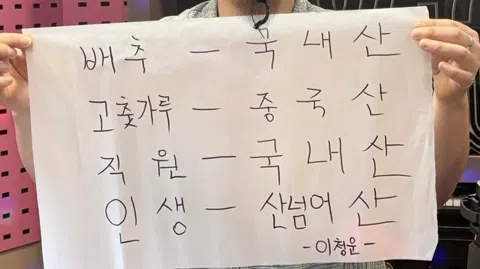 배추 - 국내산
고춧가루 - 중국산
직원 - 국내산
인생 - 산넘어산
-이청운-